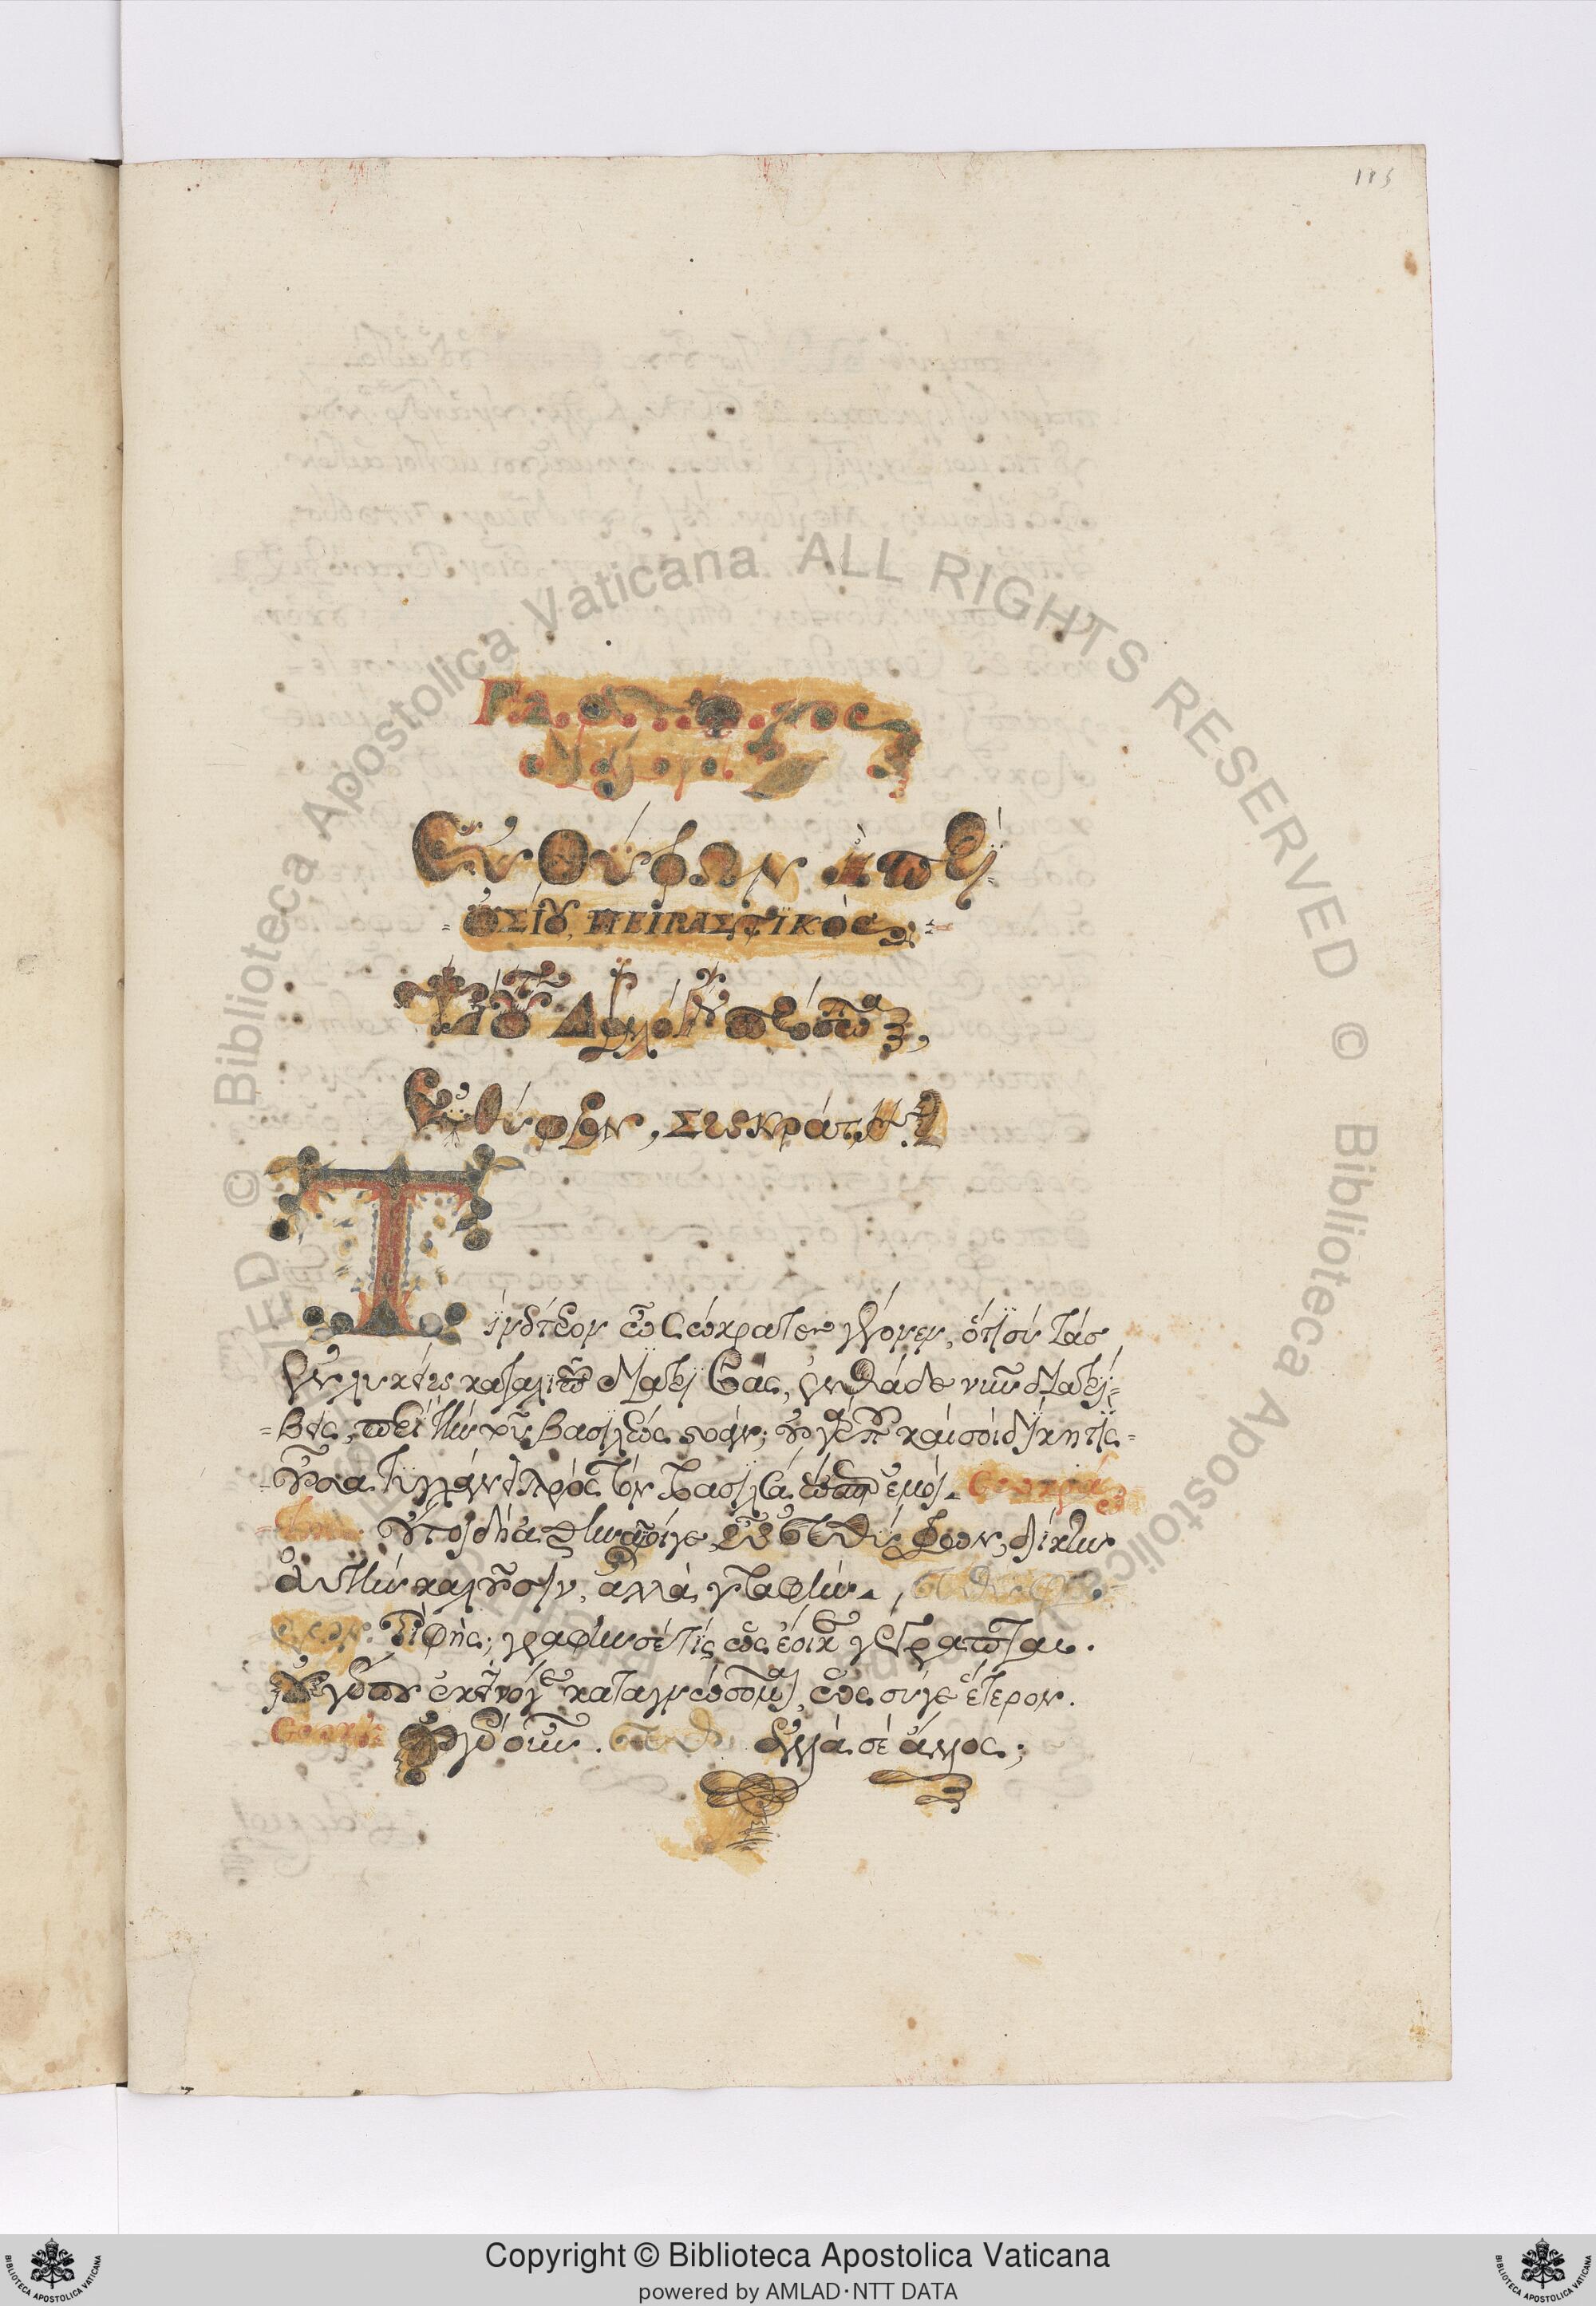 185
Εὐθύφρων ἢ περὶ
ὁσίου, πειραστικός
τὰ τοῦ διαλόγου πρόσωπα,
Εὐθύφρων, Σωκράτης.
Τί νεώτερον ὦ Σώκρατες γέγονεν, ὅτι σὺ τὰς
ἐν λυκείῳ καταλιπὼν διατριβὰς, ἐνθάδε νῦν διατρί-
βεις, περὶ τὴν τοῦ βασιλέως στοάν; οὐ γάρ που καὶ σοὶ δίκη τις
οὖσα τυγχάνει πρὸς τὸν βασιλέα ὥσπερ ἐμοί. Σωκρά
της. οὔτοι δὴ ἀθηναῖοί γε, ὦ εὐθύφρων, δίκην
αὐτὴν καλοῦσιν, ἀλλὰ γραφήν. εὐθύφρ.
τί φής; γραφὴν σέ τις ὡς ἔοικε γέγραπται.
οὐ γάρ που ἐκεῖνό γε καταγνώσομαι, ὡς σύ γε ἕτερον.
Σωκρ. οὐ γὰρ οὖν. εὐθ. ἀλλὰ σὲ ἄλλος;
Copyright © Biblioteca Apostolica Vaticana
powered by AMLAD·NTT DATA
© Biblioteca Apostolica Vaticana ALL RIGHTS RESERVED © Biblioteca Apostolica
BIBLIOTECA APOSTOLICA VATICANA
BIBLIOTECA APOSTOLICA VATICANA